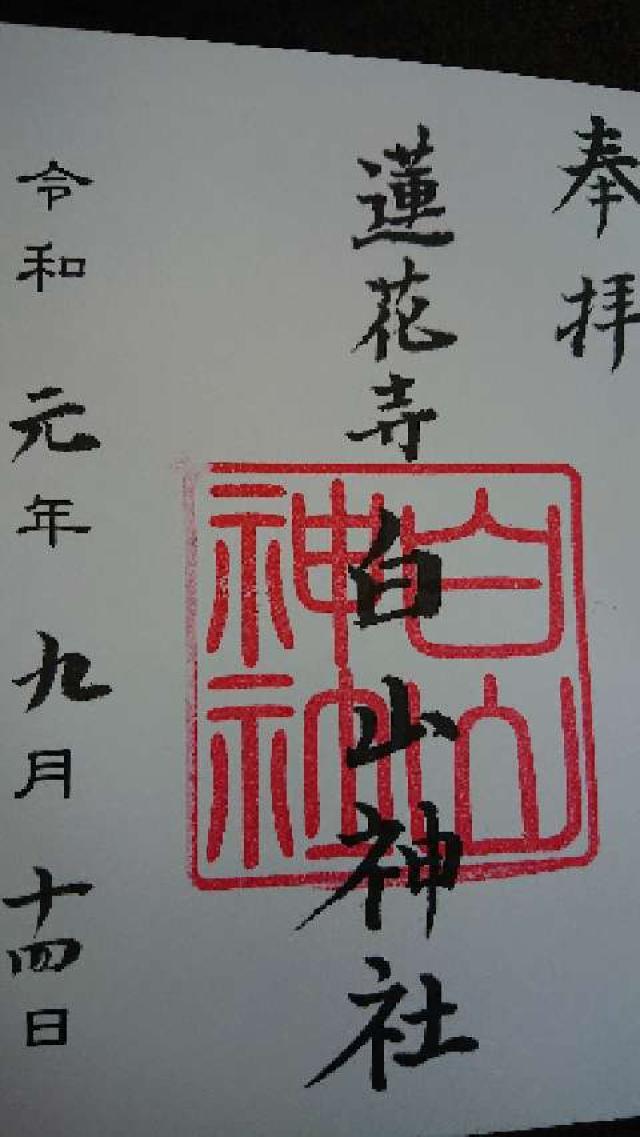 奉拝
蓮花寺白山神社
白山
神社
令和元年九月十四日